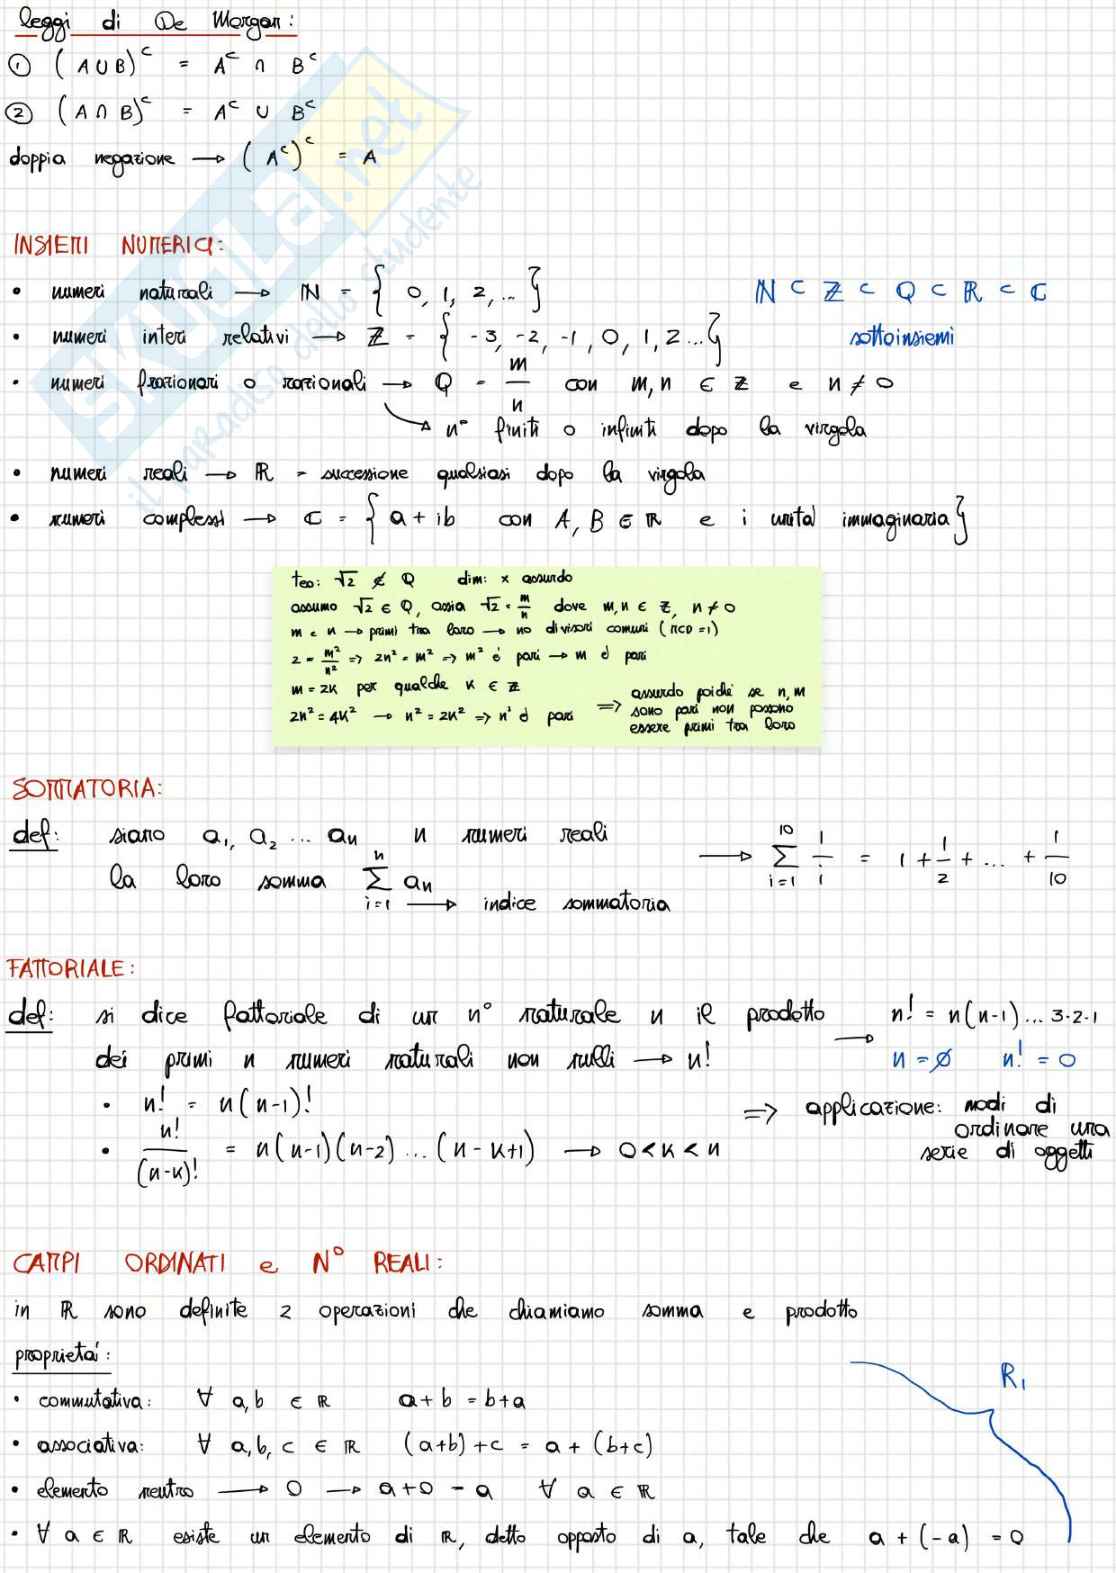 leggi di De Morgan:
① (A ∪ B)ᶜ = Aᶜ ∩ Bᶜ
② (A ∩ B)ᶜ = Aᶜ ∪ Bᶜ
doppia negazione → (Aᶜ)ᶜ = A
SKUOLA.net
il paradiso dello studente
INSIEMI NUMERICI:
• numeri naturali → ℕ = { 0, 1, 2, ... }
ℕ ⊂ ℤ ⊂ Q ⊂ ℝ ⊂ ℂ
• numeri interi relativi → ℤ = { -3, -2, -1, 0, 1, 2 ... }
sottoinsiemi
• numeri frazionari o razionali → Q = m/n con m, n ∈ ℤ e n ≠ 0
→ n° finiti o infiniti dopo la virgola
• numeri reali → ℝ = successione qualsiasi dopo la virgola
• numeri complessi → ℂ = { a + ib con A, B ∈ ℝ e i unità immaginaria }
teo: √2 ∉ Q dim: x assurdo
assumo √2 ∈ Q, ossia √2 = m/n dove m, n ∈ ℤ, n ≠ 0
m e n → primi tra loro → no divisori comuni (MCD = 1)
2 = m²/n² => 2n² = m² => m² è pari → m è pari
m = 2k per qualche k ∈ ℤ
2n² = 4k² → n² = 2k² => n² è pari
=> assurdo poiché se n, m
sono pari non possono
essere primi tra loro
SOMMATORIA:
def: siano a₁, a₂ ... aₙ n numeri reali
la loro somma ∑ᵢ₌₁ⁿ aₙ
i=1 → indice sommatoria
→ ∑ᵢ₌₁¹⁰ 1/i = 1 + 1/2 + ... + 1/10
FATTORIALE:
def: si dice fattoriale di un n° naturale n il prodotto → n! = n(n-1) ... 3·2·1
dei primi n numeri naturali non nulli → n!
n = ∅ n! = 0
• n! = n(n-1)!
• n!/(n-k)! = n(n-1)(n-2) ... (n-k+1) → 0 < k < n
=> applicazione: modi di
ordinare una
serie di oggetti
CAMPI ORDINATI e N° REALI:
in ℝ sono definite 2 operazioni che chiamiamo somma e prodotto
proprietà:
R₁
• commutativa: ∀ a, b ∈ ℝ a + b = b + a
• associativa: ∀ a, b, c ∈ ℝ (a+b) + c = a + (b+c)
• elemento neutro → 0 → a + 0 = a ∀ a ∈ ℝ
• ∀ a ∈ ℝ esiste un elemento di ℝ, detto opposto di a, tale che a + (-a) = 0